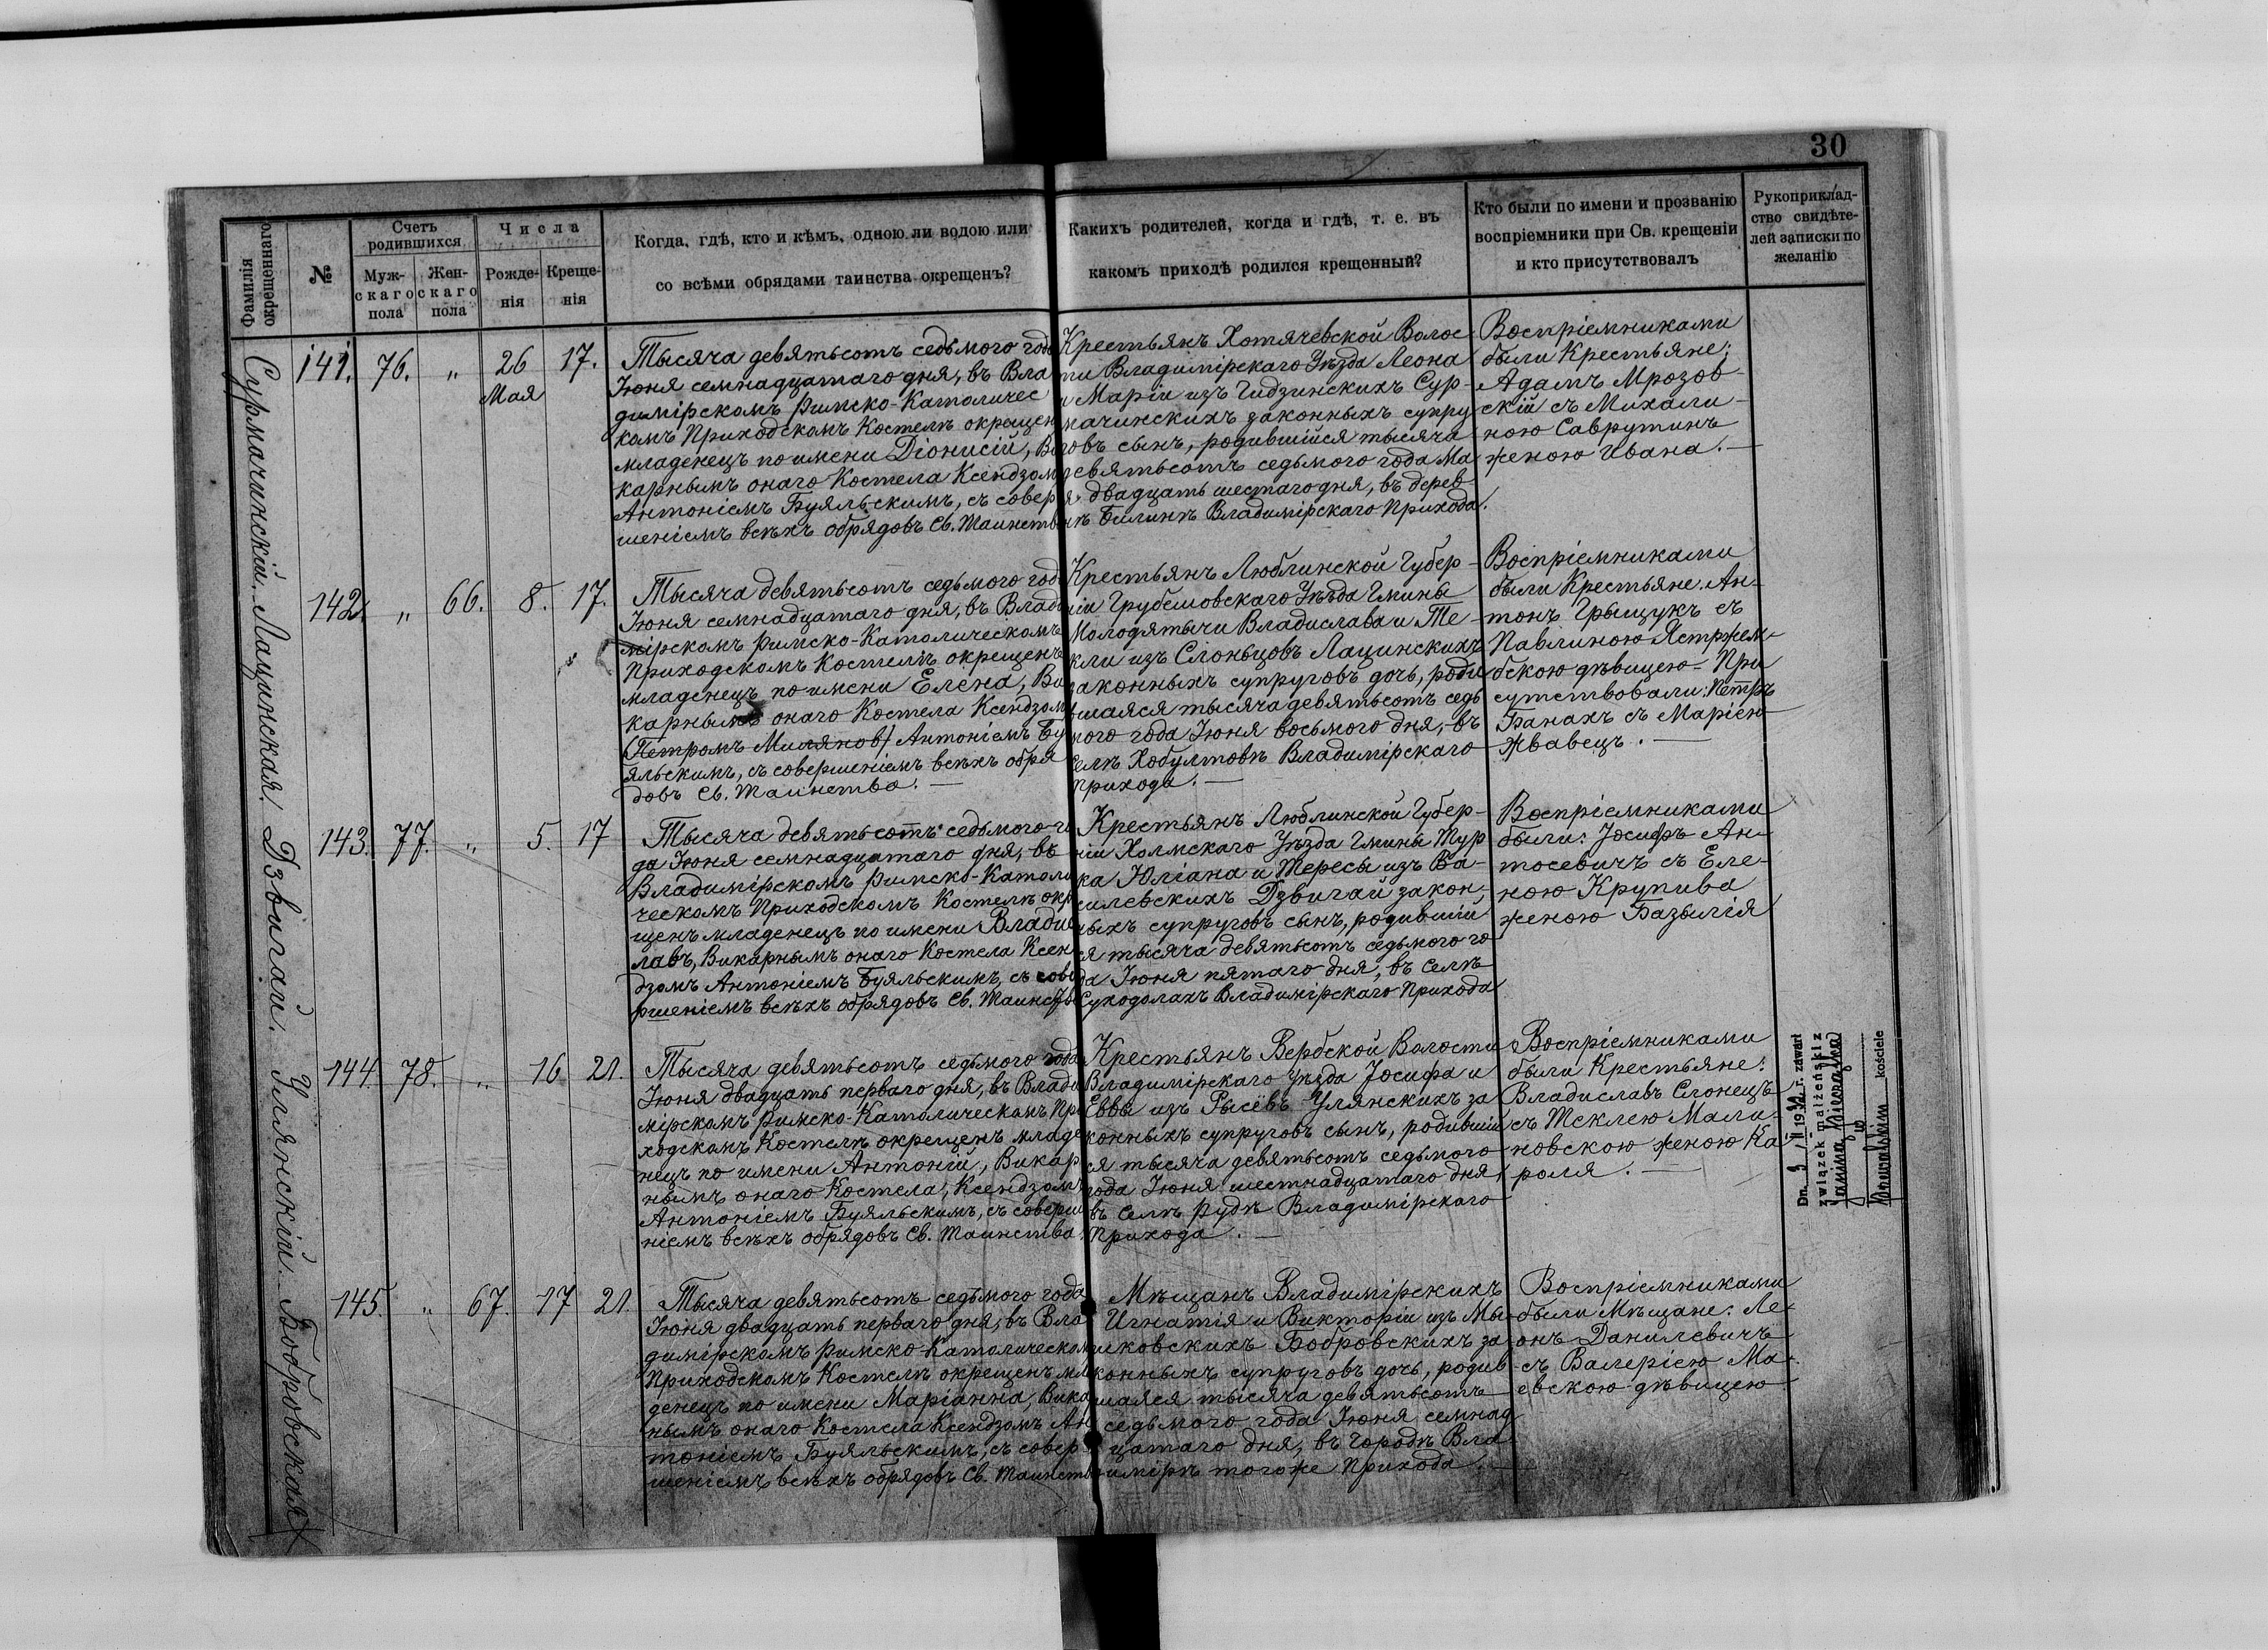 30
Фамилія окрещеннаго
№
Счетъ родившихся
Муж-
скаго
пола
Жен-
скаго
пола
Числа
Рожде-
нія
Креще-
нія
Когда, гдѣ, кто и кѣмъ, одною ли водою или
со всѣми обрядами таинства окрещенъ?
Какихъ родителей, когда и гдѣ, т. е. въ
какомъ приходѣ родился крещенный?
Кто были по имени и прозванію
воспріемники при Св. крещеніи
и кто присутствовалъ
Рукоприклад-
ство свидѣте-
лей записки по
желанію
Сурмачинскій.
141. 76. „ 26 Мая 17.
Тысяча девятьсотъ седьмого года
Іюня семнадцатаго дня, въ Вла
димірскомъ Римско-Католичес
комъ Приходскомъ Костелѣ окрещен
младенецъ по имени Діонисій, Ви
карнымъ онаго Костела Ксендзом
Антоніемъ Буяльскимъ, съ совер
шеніемъ всѣхъ обрядовъ Св. Таинств
Крестьянъ Хотячевской Волос-
ти Владимірскаго Уѣзда Леона
и Маріи изъ Гидзинскихъ Сур-
мачинскихъ законныхъ супру
говъ сынъ, родившійся тысяча
девятьсотъ седьмого года Ма
я двадцать шестаго дня, въ дерев
нѣ Билинѣ Владимірскаго Прихода.
Воспріемниками
были Крестьяне:
Адамъ Мрозов-
скій съ Михали-
ною Саврутинъ
женою Ивана. —
Лацинская.
142. „ 66. 8. 17.
Тысяча девятьсотъ седьмого год
Іюня семнадцатаго дня, въ Влад
мірскомъ Римско-Католическомъ
Приходскомъ Костелѣ окрещенъ
младенецъ по имени Елена, Ви
карнымъ онаго Костела Ксендзом
(Петромъ Милянов) Антоніемъ Бу
яльскимъ, съ совершеніемъ всѣхъ обря
довъ Св. Таинства. —
Крестьянъ Люблинской Губер-
ніи Грубешовскаго Уѣзда Гмины
Молодятычи Владислава и Те-
кли изъ Слоньцовъ Лацинскихъ
законныхъ супруговъ дочь, роди
вшаяся тысяча девятьсотъ седь
мого года Іюня восьмого дня, въ
Селѣ Хобултовѣ Владимірскаго
Прихода. —
Воспріемниками
были Крестьяне. Ан-
тонъ Грыщукъ съ
Павлиною Ястржем-
бскою дѣвицею. При
сутствовали: Петръ
Банахъ съ Маріею
Жвавецъ. —
Дзвигай.
143. 77. „ 5. 17
Тысяча девятьсотъ седьмого г
да Іюня семнадцатаго дня, въ
Владимірскомъ Римско-Католи
ческомъ Приходскомъ Костелѣ окр
щенъ младенецъ по имени Владис
лавъ, Викарнымъ онаго Костела Ксен
дзомъ Антоніемъ Буяльскимъ, съ сове
ршеніемъ всѣхъ обрядовъ Св. Таинства
Крестьянъ Люблинской Губер-
ніи Холмскаго Уѣзда Гмины Тур
ка Юліана и Тересы изъ Ва-
силевскихъ Дзвигай закон-
ныхъ супруговъ сынъ, родившій
ся тысяча девятьсотъ седьмого го
да Іюня пятаго дня, въ Селѣ
Суходолахъ Владимірскаго Прихода
Воспріемниками
были: Іосифъ Ан-
тосевичъ съ Еле-
ною Крупива
женою Базылія
Улянскій.
144. 78. „ 16 21.
Тысяча девятьсотъ седьмого года
Іюня двадцать перваго дня, въ Влади
мірскомъ Римско-Католическомъ При
ходскомъ Костелѣ окрещенъ младе
нецъ по имени Антоній, Викар
нымъ онаго Костела, Ксендзомъ
Антоніемъ Буяльскимъ, съ соверше
ніемъ всѣхъ обрядовъ Св. Таинства.
Крестьянъ Вербской Волости
Владимірскаго Уѣзда Іосифа и
Еввы изъ Рысёвъ Улянскихъ за
конныхъ супруговъ сынъ, родившій
ся тысяча девятьсотъ седьмого
года Іюня шестнадцатаго дня,
въ Селѣ Рудѣ Владимірскаго
Прихода. —
Воспріемниками
были Крестьяне:
Владиславъ Слонецъ
съ Теклею Мали-
новскою женою Ка
роля. —
związek małżeński z
kościele
Бобровская
145. „ 67. 17 21.
Тысяча девятьсотъ седьмого года
Іюня двадцать перваго дня, въ Вла
димірскомъ Римско-Католическом
Приходскомъ Костелѣ окрещенъ мла
денецъ по имени Маріанна, Вика
нымъ онаго Костела Ксендзомъ Ан
тоніемъ Буяльскимъ, съ совер
шеніемъ всѣхъ обрядовъ Св. Таинств
Мѣщанъ Владимірскихъ
Игнатія и Викторіи изъ Мы-
шковскихъ Бобровскихъ за
конныхъ супруговъ дочь, родив
шаяся тысяча девятьсотъ
седьмого года Іюня семнад
цатаго дня, въ Городѣ Вла
димірѣ тогоже Прихода. —
Воспріемниками
были Мѣщане: Ле-
онъ Данилевичъ
съ Валеріею Ма-
евскою дѣвицею